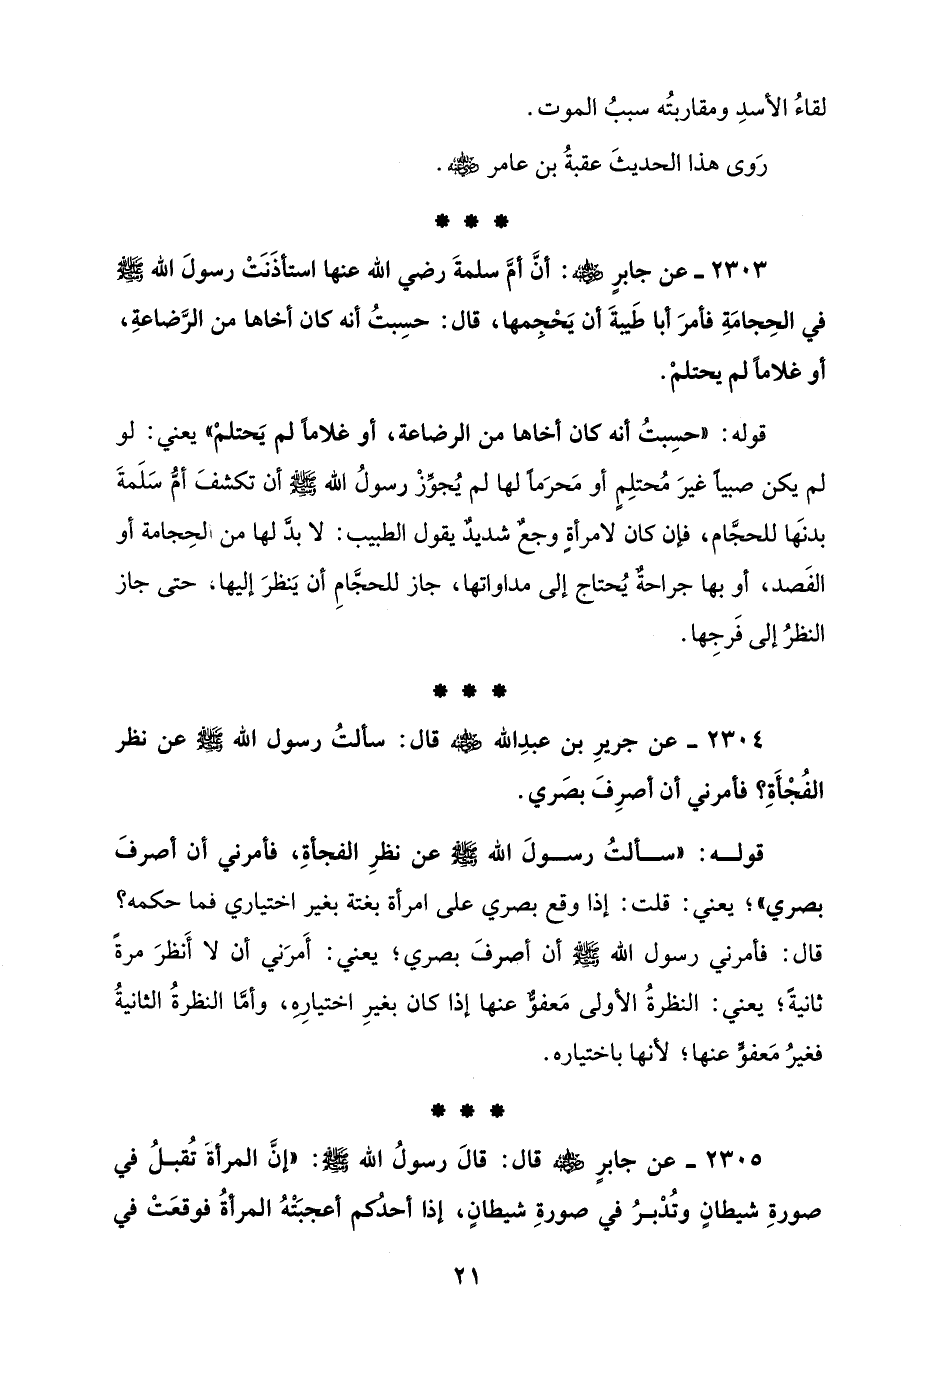 لقاءُ الأسدِ ومقاربتُه سببُ الموت.
رَوى هذا الحديثَ عقبةُ بن عامر ﵁.
* * *
٢٣٠٣ ـ عن جابرٍ ﵁: أنَّ أمَّ سلمةَ رضي الله عنها استأذَنَتْ رسولَ الله ﷺ
في الحِجامَةِ فأمرَ أبا طَيبةَ أن يَحْجِمها، قال: حسِبتُ أنه كان أخاها من الرَّضاعةِ،
أو غلاماً لم يحتلمْ.
قوله: «حسِبتُ أنه كان أخاها من الرضاعة، أو غلاماً لم يَحتلمْ» يعني: لو
لم يكن صبياً غيرَ مُحتلِمٍ أو مَحرَماً لها لم يُجوِّزْ رسولُ الله ﷺ أن تكشفَ أمُّ سَلَمةَ
بدنَها للحجَّام، فإن كان لامرأةٍ وجعٌ شديدٌ يقول الطبيب: لا بدَّ لها من الحِجامة أو
الفَصد، أو بها جراحةٌ يُحتاج إلى مداواتها، جاز للحجَّامِ أن يَنظرَ إليها، حتى جاز
النظرُ إلى فَرجِها.
* * *
٢٣٠٤ ـ عن جريرِ بن عبدِالله ﵁ قال: سألتُ رسول الله ﷺ عن نظر
الفُجْأَةِ؟ فأمرني أن أصرِفَ بصَري.
قولـه: «سـألتُ رسـولَ الله ﷺ عن نظرِ الفجأةِ، فأمرني أن أصرفَ
بصري»؛ يعني: قلت: إذا وقع بصري على امرأة بغتة بغير اختياري فما حكمه؟
قال: فأمرني رسول الله ﷺ أن أصرفَ بصري؛ يعني: أَمرَني أن لا أَنظرَ مرةً
ثانيةً؛ يعني: النظرةُ الأولى مَعفوٌّ عنها إذا كان بغيرِ اختيارِهِ، وأمَّا النظرةُ الثانيةُ
فغيرُ مَعفوٍّ عنها؛ لأنها باختياره.
* * *
٢٣٠٥ ـ عن جابرٍ ﵁ قال: قالَ رسولُ الله ﷺ: «إنَّ المرأةَ تُقبـلُ في
صورةِ شيطانٍ وتُدْبـرُ في صورةِ شيطانٍ، إذا أحدُكم أعجبَتْهُ المرأةُ فوقعَتْ في
٢١